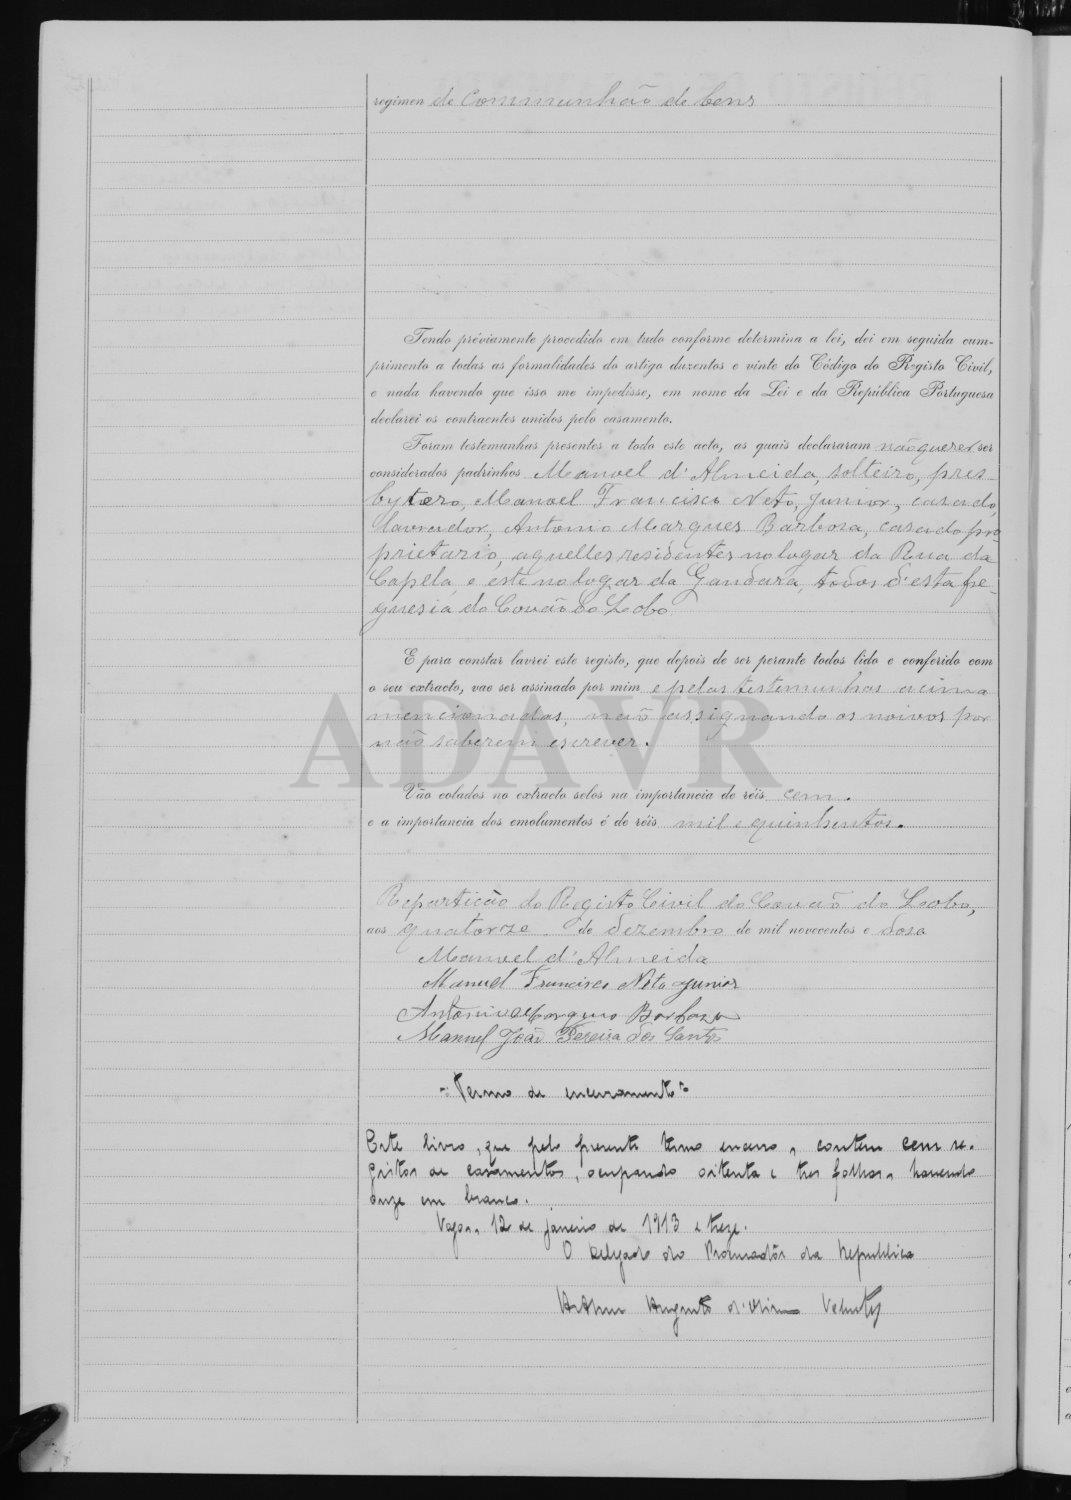 regimen de Communhão de bens
Tendo préviamente procedido em tudo conforme determina a lei, dei em seguida cum-
primento a todas as formalidades do artigo duzentos e vinte do Código do Registo Civil,
e nada havendo que isso me impedisse, em nome da Lei e da República Portuguesa
declarei os contraentes unidos pelo casamento.
Foram testemunhas presentes a todo este acto, as quais declararam não querer ser
considerados padrinhos Manoel d'Almeida, solteiro, pres-
bytero, Manoel Francisco Neto, Junior, casado,
lavrador, Antonio Marques Barbosa, casado pro-
prietario, aquelles residentes no lugar da Rua da
Capela, e este no logar da Gandara, todos d'esta fre-
guesia do Covão do Lobo
E para constar lavrei este registo, que depois de ser perante todos lido e conferido com
o seu extracto, vae ser assinado por mim e pelas testemunhas acima
mencionadas, não assignando os noivos por
não saberem escrever.
ADAVR
Vão colados no extracto selos na importancia de réis cem.
e a importancia dos emolumentos é de réis mil e quinhentos.
Repartição do Registo Civil do Covão do Lobo,
aos quatorze de dezembro de mil novecentos e doze
Manoel d'Almeida
Manuel Francisco Neto Junior
Antonio Marques Barbosa
Manuel João Pereira dos Santos
Termo de encerramento
Este livro, que pelo presente termo encerro, contem cem re-
gistos de casamentos, ocupando oitenta e tres folhas, havendo
onze em branco.
Vagos, 12 de janeiro de 1913 e treze.
O Delegado do Procurador da Republica
Arthur Augusto